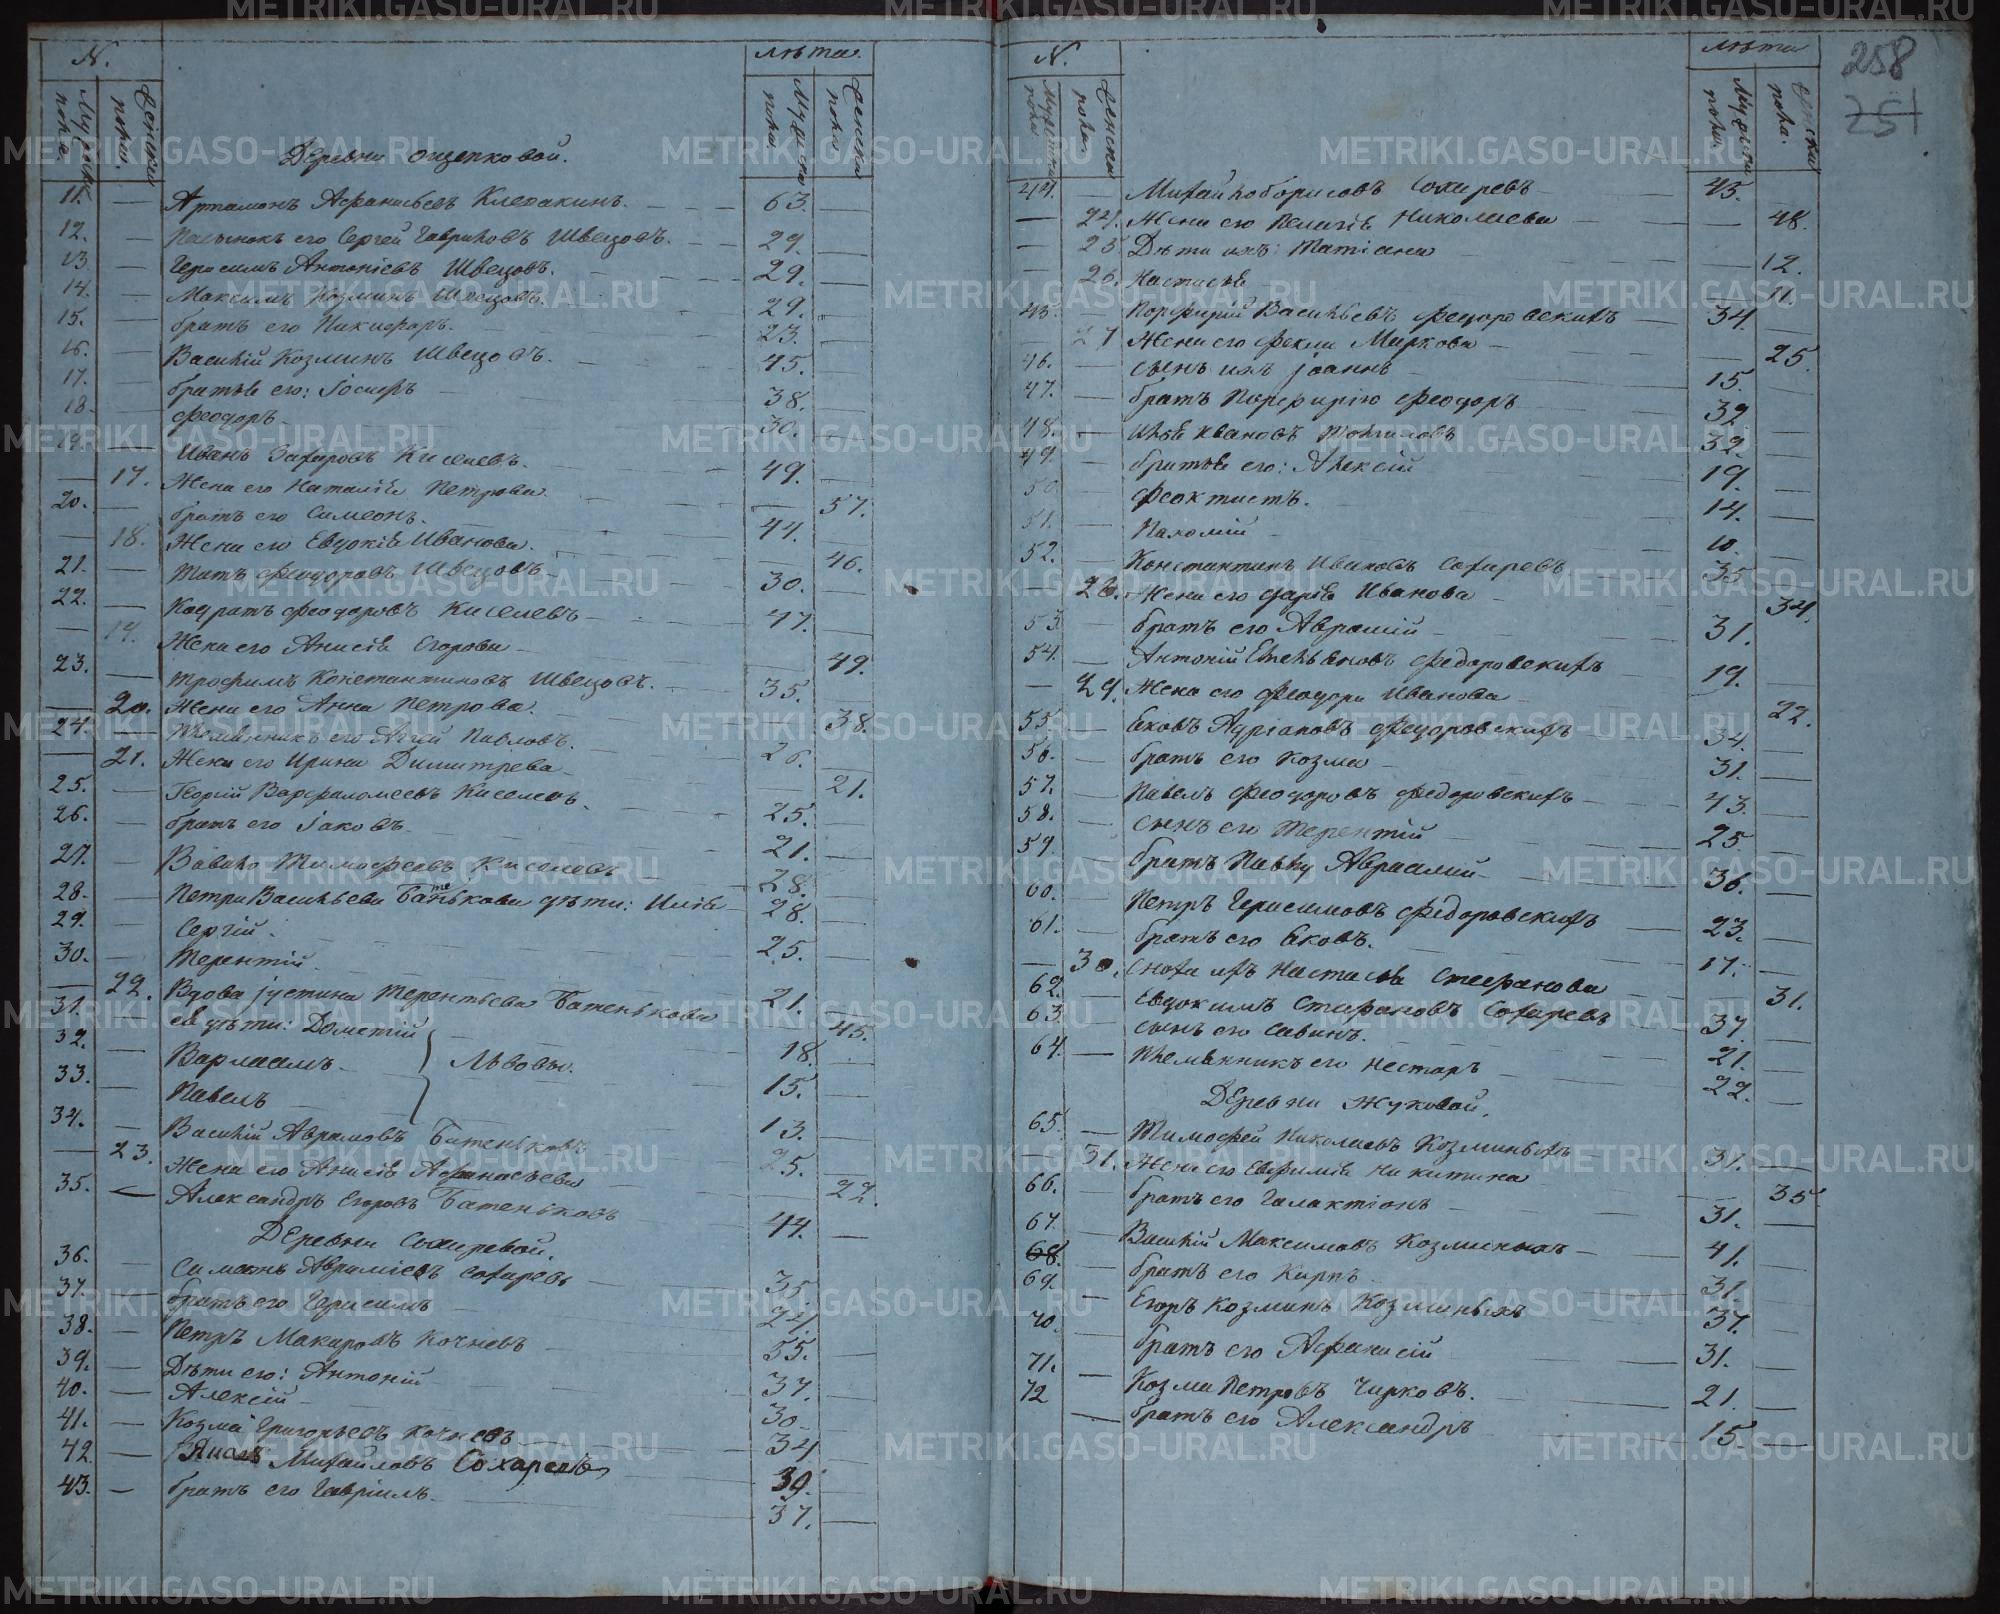 N.
лѣта.
Мужеска пола.
Женска пола.
Мужеска пола.
Женска пола
Деревни Ощепковой.
11. — Артамонъ Афанасьевъ Клепакинъ. 63. —
12. — Пасынокъ его Сергей Гавриловъ Швецовъ. 29. —
13. — Герасимъ Антоніевъ Швецовъ. 29. —
14. — Максимъ Козминъ Швецовъ. 29. —
15. — братъ его Никифоръ. 23. —
16. — Василій Козминъ Швецовъ. 45. —
17. — братья его: Іосифъ 38. —
18. — Феодоръ 30. —
19. — Иванъ Захаровъ Киселевъ. 49. —
— 17. Жена его Наталія Петрова. — 57.
20. — братъ его Симеонъ. 44. —
— 18. Жена его Евдокія Иванова. — 46.
21. — Титъ Феодоровъ Швецовъ 30. —
22. — Кодратъ Феодоровъ Киселевъ 47. —
— 19. Жена его Анисія Егорова — 49.
23. — Трофимъ Константиновъ Швецовъ. 35. —
— 20. Жена его Анна Петрова. — 38.
24. — Племянникъ его Авгей Павловъ. 26. —
— 21. Жена его Ирина Димитрева — 21.
25. — Георгій Варфаломеевъ Киселевъ. 25. —
26. — братъ его Іаковъ 21. —
27. — Вавило Тимофеевъ Киселевъ 28. —
28. — Петра Васильева Батенькова дѣти: Илія 28. —
29. — Сергій. 25. —
30. — Терентій 21. —
— 22. Вдова Іустина Терентьева Батенькова — 45.
31. — ея дѣти: Дометій 18. —
32. — Варлаамъ 15. —
Львовы.
33. — Павелъ 13. —
34. — Василій Аврамовъ Батеньковъ 25. —
— 23. Жена его Анисія Афанасьева — 22.
35. — Александръ Егоровъ Батеньковъ 44. —
Деревни Сохаревой.
36. — Симеонъ Авраміевъ Сохаревъ 35
37. — братъ его Герасимъ 24
38. — Петръ Макаровъ Кочневъ 55.
39. — Дѣти его: Антоній 37.
40. — Алексій 30.
41. — Козма Григорьевъ Кочневъ 34
42. — Михайловъ Сохаревъ 39.
43. — братъ его Гавріилъ 37. —
N.
лѣта
258
251
Мужеска пола
Женска пола.
Мужеска пола.
Женска пола.
44. — Михайло Борисовъ Сохаревъ 43. —
— 24. Жена его Пелагія Николаева — 48.
— 25. Дѣти ихъ: Татіана — 12.
— 26. Настасья — 11.
45. — Порфирій Васильевъ Федоровскихъ 34. —
— 27 Жена его Фекла Маркова — 25.
46. — сынъ ихъ Іоаннъ 15. —
47. — братъ Порфирію Феодоръ 32 —
48. — Илья Ивановъ 32. —
49. — братья его: Алексій 19. —
50. Феоктистъ. 14. —
51. — Пахомій 10. —
52. — Константинъ Ивановъ Сохаревъ 35 —
— 28. Жена его Дарія Иванова — 34.
53. — братъ его Аврамій 31. —
54. — Антоній Емельяновъ Федоровскихъ 19. —
— 29. Жена его Феодора Иванова — 22.
55. — Яковъ Адріановъ Федоровскихъ 34. —
56. — братъ его Козма 31. —
57. — Павелъ Феодоровъ Федоровскихъ 43. —
58. — сынъ его Терентій 25. —
59. братъ Павлу Авраамій 36. —
60. — Петръ Герасимовъ Федоровскихъ 23. —
61. — братъ его Яковъ. 17. —
— 30. Сноха ихъ Настасья Стефанова — 31.
62. — Евдокимъ Стефановъ Сохаревъ 37. —
63. сынъ его Савинъ. 21. —
64. — Племянникъ его Несторъ 22. —
Деревни Жуковой.
65. — Тимофей Николаевъ Козминыхъ 31. —
— 31. Жена его Евфимія Никитина — 35.
66. — братъ его Галактіонъ 31. —
67. Василій Максимовъ Козминыхъ 41. —
68. — братъ его Карпъ 31. —
69. — Егоръ Козминъ Козминыхъ 37. —
70. братъ его Афанасій 31. —
71. — Козма Петровъ Чирковъ. 21. —
72 — братъ его Александръ 15. —
METRIKI.GASO-URAL.RU